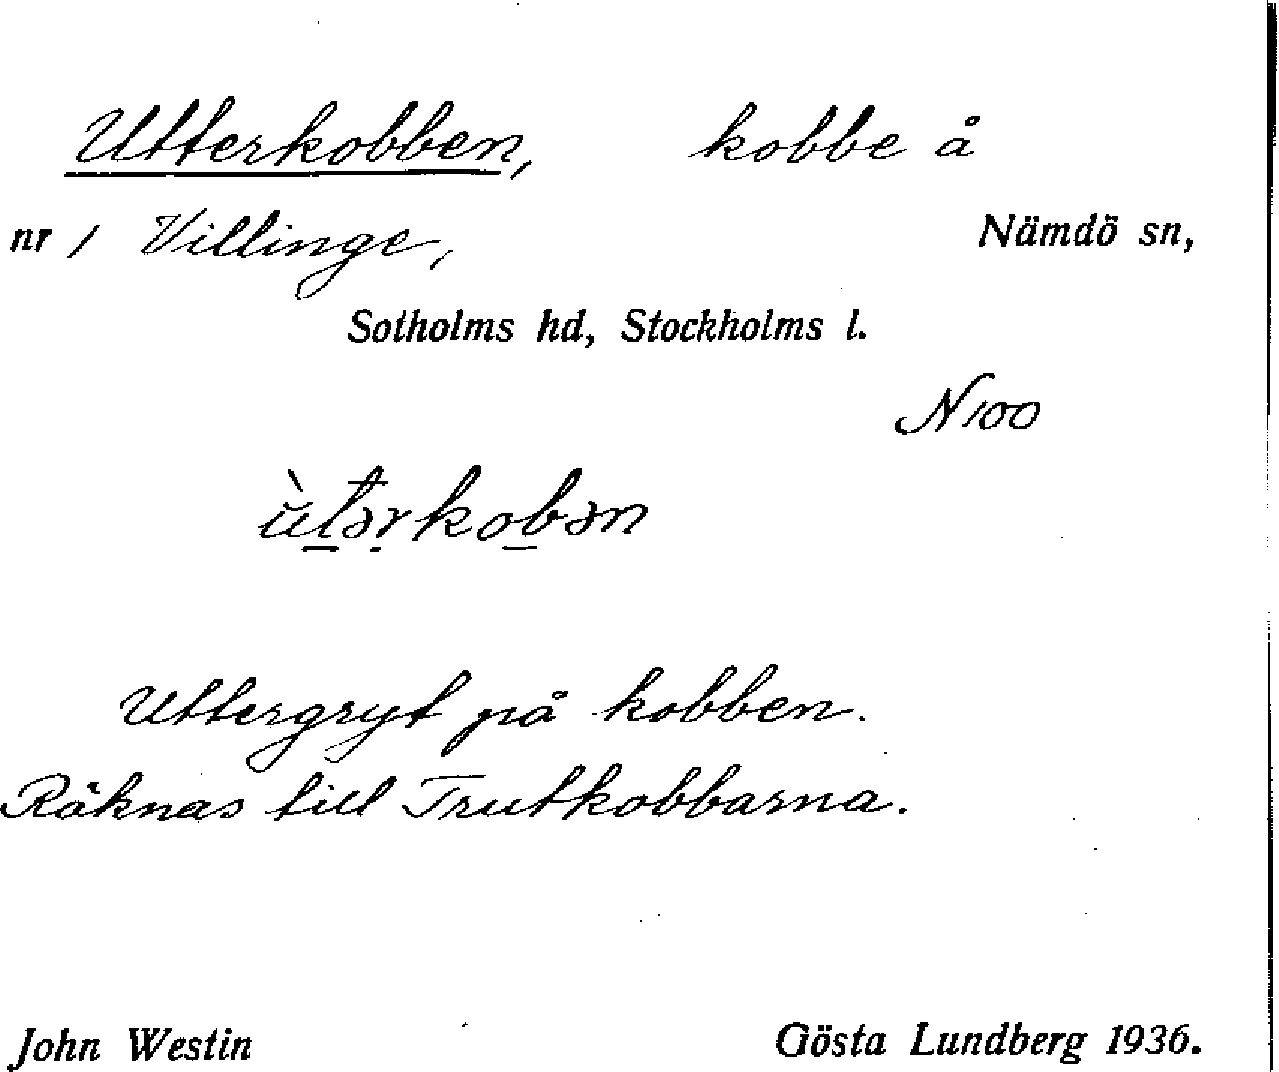 Utterkobben, kobbe å
nr 1 Villinge, Nämdö sn,
Sotholms hd, Stockholms l.
N100
ùtərkobən
Uttergryt på kobben.
Räknas till Trutkobbarna.
John Westin Gösta Lundberg 1936.